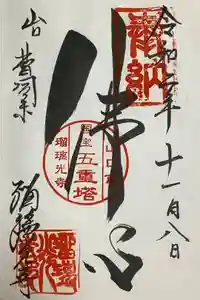 令和二年十一月八日
奉納
佛心
山口
国宝
五重塔
瑠璃光寺
曹洞宗
瑠璃光寺